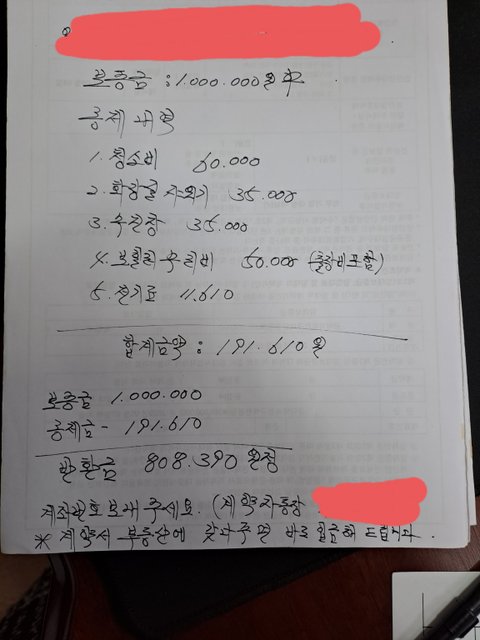 보증금 : 1.000.000원中
공제 내역
1. 청소비 60.000
2. 화장실 샤워기 35.000
3. 수전장 35.000
4. 보일러 수리비 50.000 (출장비포함)
5. 전기료 11.610
합계금액 : 191.610원
보증금 1.000.000
공제금 - 191.610
반환금 808.390원정
계좌번호 보내 주세요. (계약자통장
* 계약서 부동산에 갖다주면 바로 입금해 드립니다.